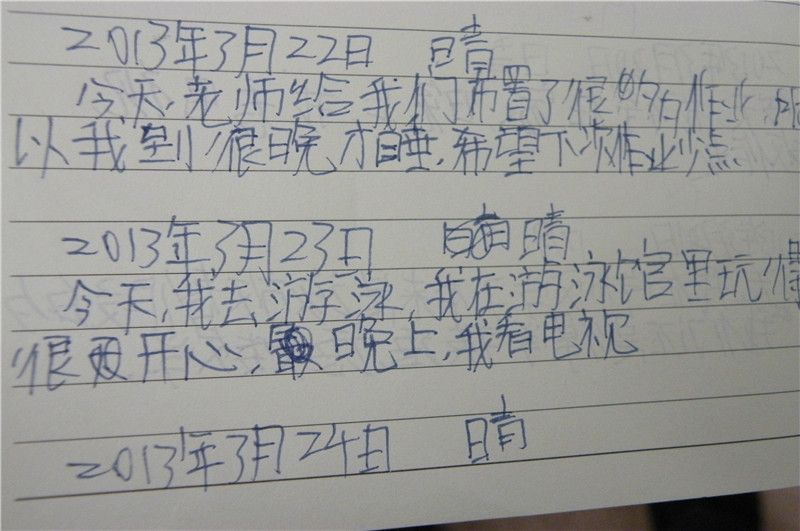 2013年3月22日 晴
今天,老师给我们布置了很的作业,所
以我到很晚才睡,希望下次作业少点
2013年3月23日 晴
今天,我去游泳,我在游泳馆里玩得
很开心,晚上,我看电视
2013年3月24日 晴